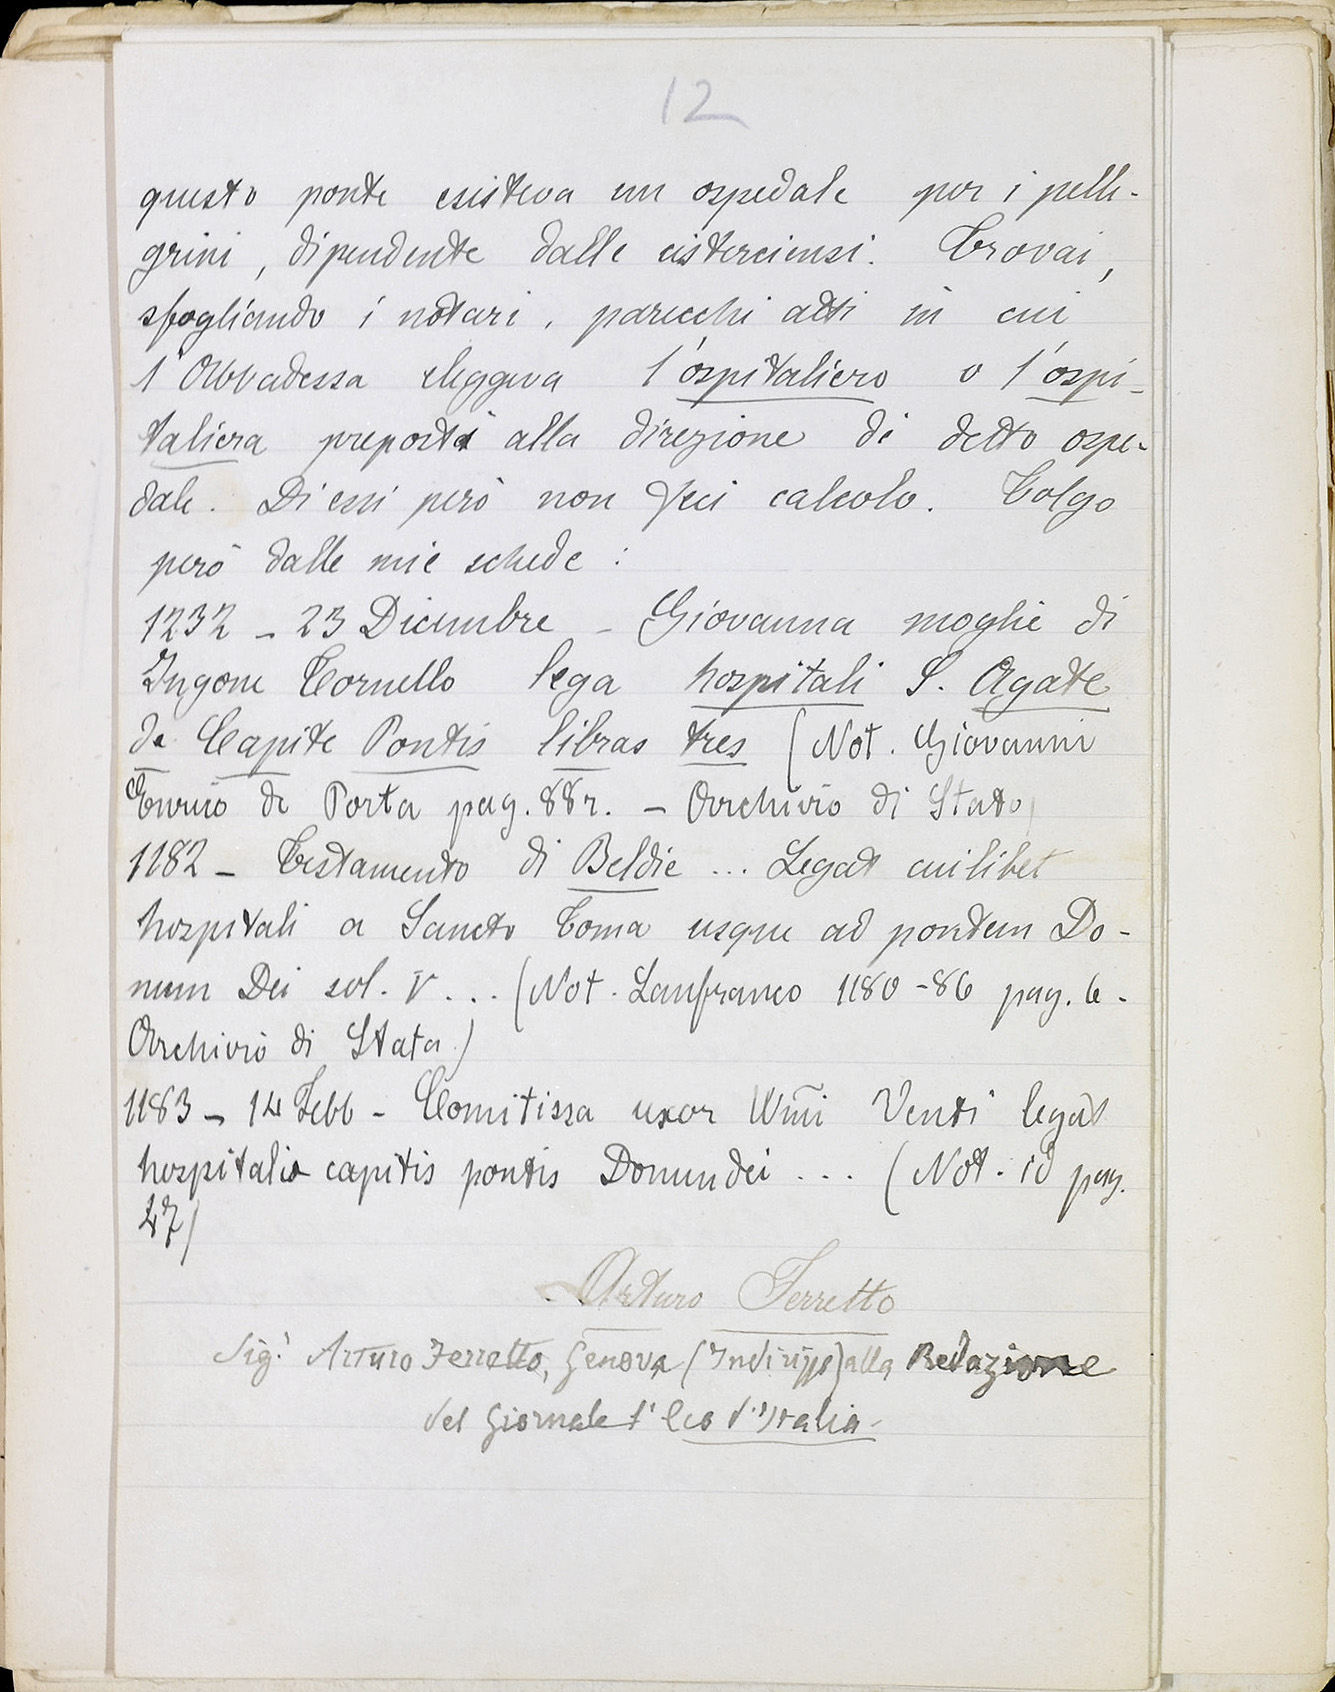 12
questo ponte esisteva un ospedale per i pelle-
grini, dipendente dalle cisterciensi. Trovai,
sfogliando i notari, parecchi atti in cui
l'Abbadessa eleggeva l'ospitaliero o l'ospi-
taliera preposti alla direzione di detto ospe-
dale. Di essi però non feci calcolo. Tolgo
però dalle mie schede:
1232 - 23 Dicembre - Giovanna moglie di
Ingone Tornello lega hospitali S. Agate
de Capite Pontis libras tres (Not. Giovanni
Enrico de Porta pag. 88r. - Archivio di Stato)
1182 - Testamento di Beldie ... Legat cuilibet
hospitali a Sancto Toma usque ad pontem Do-
num Dei sol. V... (Not. Lanfranco 1180-86 pag. 6-
Archivio di Stato)
1183 - 14 Febb - Comitissa uxor Wmi Venti legat
hospitalis capitis pontis Donumdei ... (Not. id pag.
47)
Arturo Ferretto
Sigr Arturo Ferretto, Genova (Indirizzo) alla Redazione
del Giornale l'Eco d'Italia-